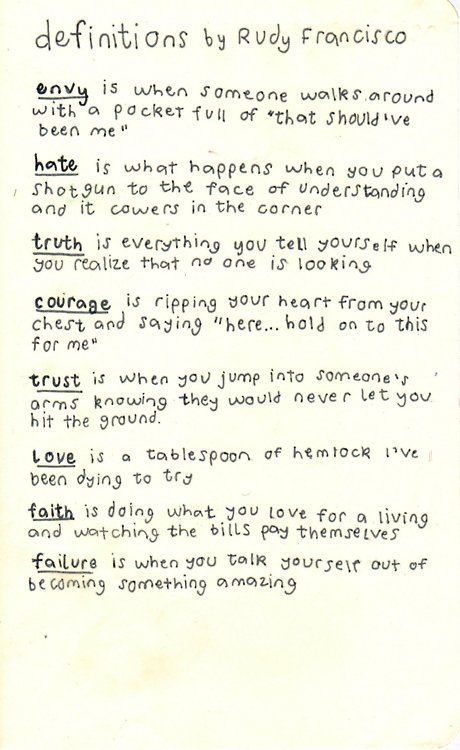 definitions by Rudy Francisco
envy is when someone walks around
with a pocket full of "that should've
been me"
hate is what happens when you put a
shotgun to the face of understanding
and it cowers in the corner
truth is everything you tell yourself when
you realize that no one is looking
courage is ripping your heart from your
chest and saying "here... hold on to this
for me"
trust is when you jump into someone's
arms knowing they would never let you
hit the ground.
love is a tablespoon of hemlock I've
been dying to try
faith is doing what you love for a living
and watching the bills pay themselves
failure is when you talk yourself out of
becoming something amazing